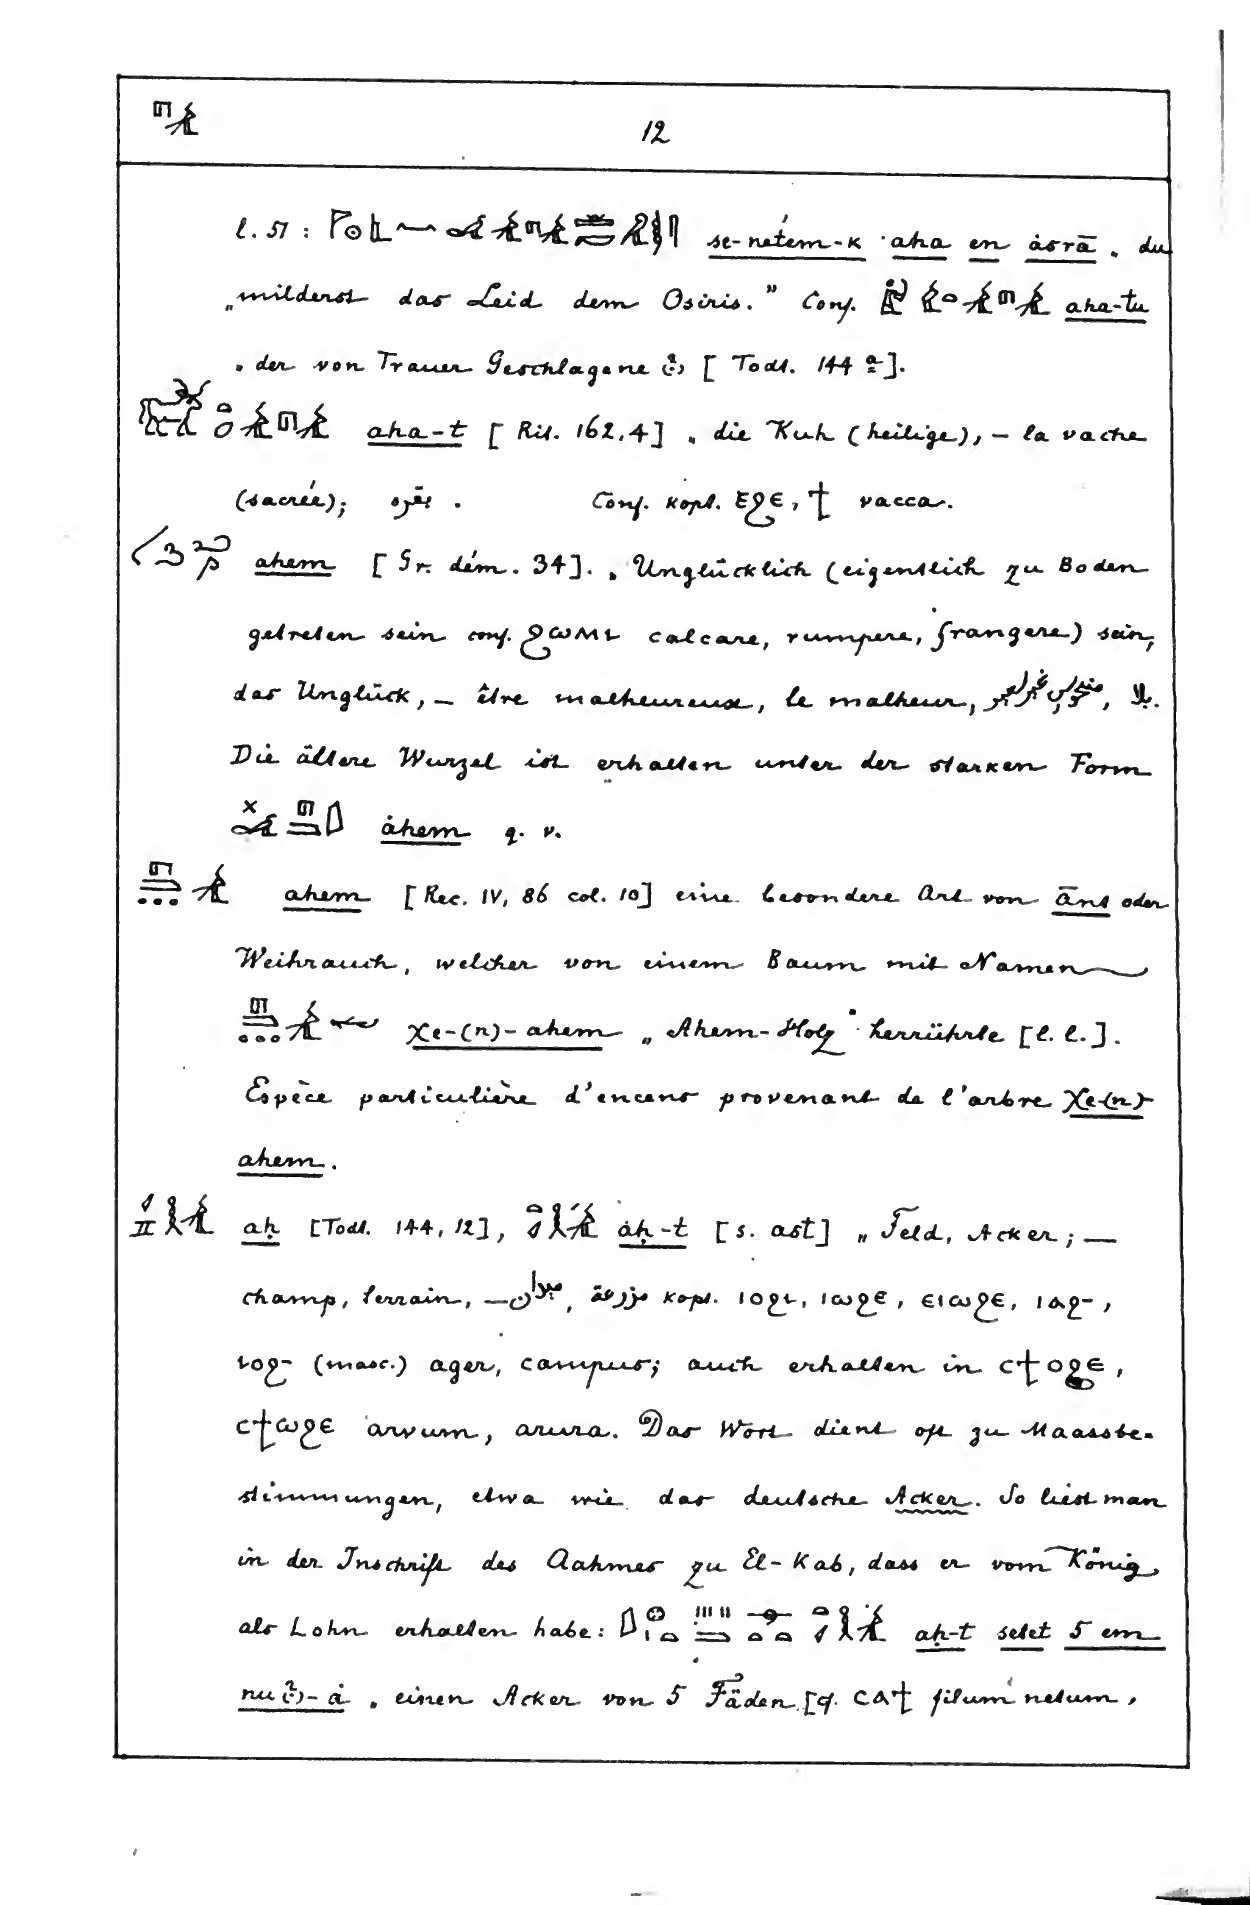 12
l. 51 : se-netem-k aha en ȧsrā „ du
„milderst das Leid dem Osiris.” Conf. aha-tu
„ der von Trauer Geschlagene [ Todt. 144 ].
aha-t [ Rit. 162,4] „ die Kuh (heilige), – la vache
(sacrée); بقره . Conf. kopt. ⲉϩⲉ, ϯ vacca.
ahem [ Gr. dém. 34]. „ Unglücklich (eigentlich zu Boden
getreten sein conf. ϩⲱⲙⲓ calcare, rumpere, frangere) sein,
das Unglück, – être malheureux, le malheur, بلا.
Die ältere Wurzel ist erhalten unter der starken Form
ȧhem q. v.
ahem [ Rec. IV, 86 col. 10] eine besondere Art von ānt oder
Weihrauch, welcher von einem Baum mit Namen
χe-(n)-ahem „ Ahem-Holz” herrührte [l. l.].
Espèce particulière d'encens provenant de l'arbre χe-(n)-
ahem.
aḥ [Todt. 144, 12], ȧḥ-t [ s. ast] „ Feld, Acker ; –
champ, terrain, – ميدان, مزرعة kopt. ⲓⲟϩⲓ, ⲓⲱϩⲉ, ⲉⲓⲱϩⲉ, ⲓⲁϩ- ,
ⲓⲟϩ- (masc.) ager, campus; auch erhalten in ⲥϯⲟϩⲉ ,
ⲥϯⲱϩⲉ arvum, arura. Das Wort dient oft zu Maassbe-
stimmungen, etwa wie das deutsche Acker. So liest man
in der Inschrift des Aahmes zu El-Kab, dass er vom König
als Lohn erhalten habe: aḥ-t setet 5 em
nu - ȧ „ einen Acker von 5 Fäden [cf. ⲥⲁϯ filum netum,